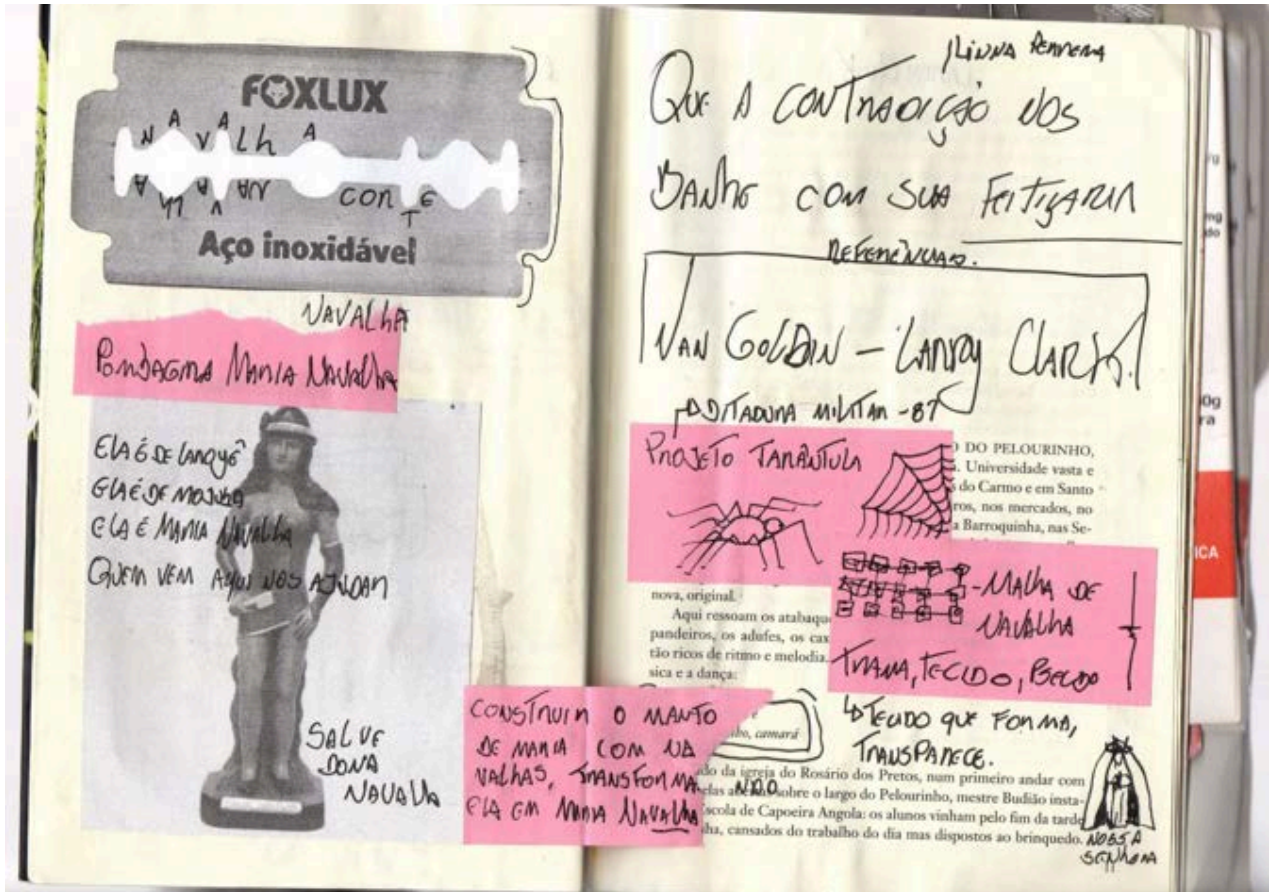 FOXLUX
NAVALhA
NAVALHA
CONTE
Aço inoxidável
NAVALhA
POMBAGIRA MARIA NAVALHA
ELA É DE
ELA É DE
ELA É MARIA NAVALHA
QUEM VEM AQUI NOS AJUDAR
SALVE
DONA
NAVALHA
CONSTRUIR O MANTO
DE MARIA COM NA
VALHAS, TRANSFORMA
NDO
ELA EM MARIA NAVALHA
QUE A CONTRADIÇÃO NOS
BANHE COM SUA FEITIÇARIA
REFERÊNCIAS.
NAN GOLDIN – LARRY CLARK.
DITADURA MILITAR -87
PROJETO TARÂNTULA
O DO PELOURINHO,
. Universidade vasta e
s do Carmo e em Santo
ros, nos mercados, no
a Barroquinha, nas Se-
- MALHA DE
NAVALHA
TRAMA, TECIDO,
nova, original.
Aqui ressoam os atabaqu
pandeiros, os adufes, os cax
tão ricos de ritmo e melodia.
sica e a dança:
ho, camará
TECIDO QUE FORMA,
TRANSPARECE.
do da igreja do Rosário dos Pretos, num primeiro andar com
elas abertas sobre o largo do Pelourinho, mestre Budião insta-
Escola de Capoeira Angola: os alunos vinham pelo fim da tarde
ha, cansados do trabalho do dia mas dispostos ao brinquedo.
NOSSA
SENHORA
ICA